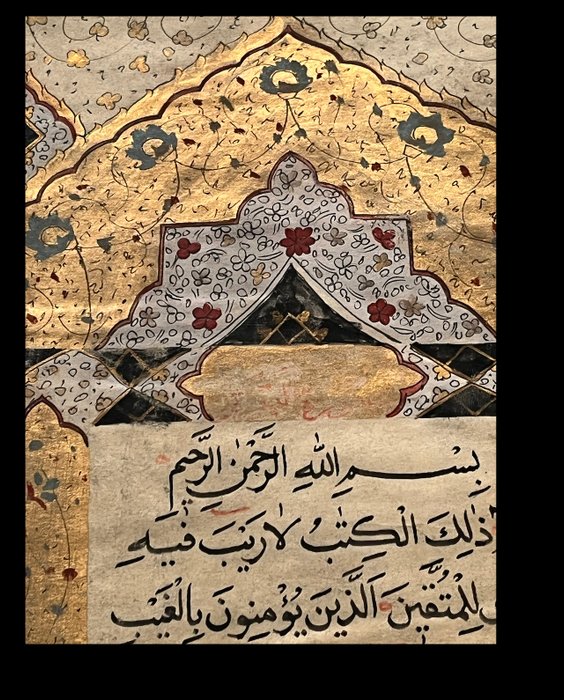 بِسْمِ اللهِ الرَّحْمٰنِ الرَّحِيمِ
ذٰلِكَ الْكِتٰبُ لَا رَيْبَ فِيهِ
لِلْمُتَّقِينَ الَّذِينَ يُؤْمِنُونَ بِالْغَيْبِ